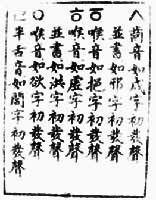 ㅅ 齒音如戌字初發聲
並書如邪字初發聲
ㆆ 喉音如挹字初發聲
ㅎ 喉音如虛字初發聲
並書如洪字初發聲
ㅇ 喉音如欲字初發聲
ㄹ 半舌音如閭字初發聲